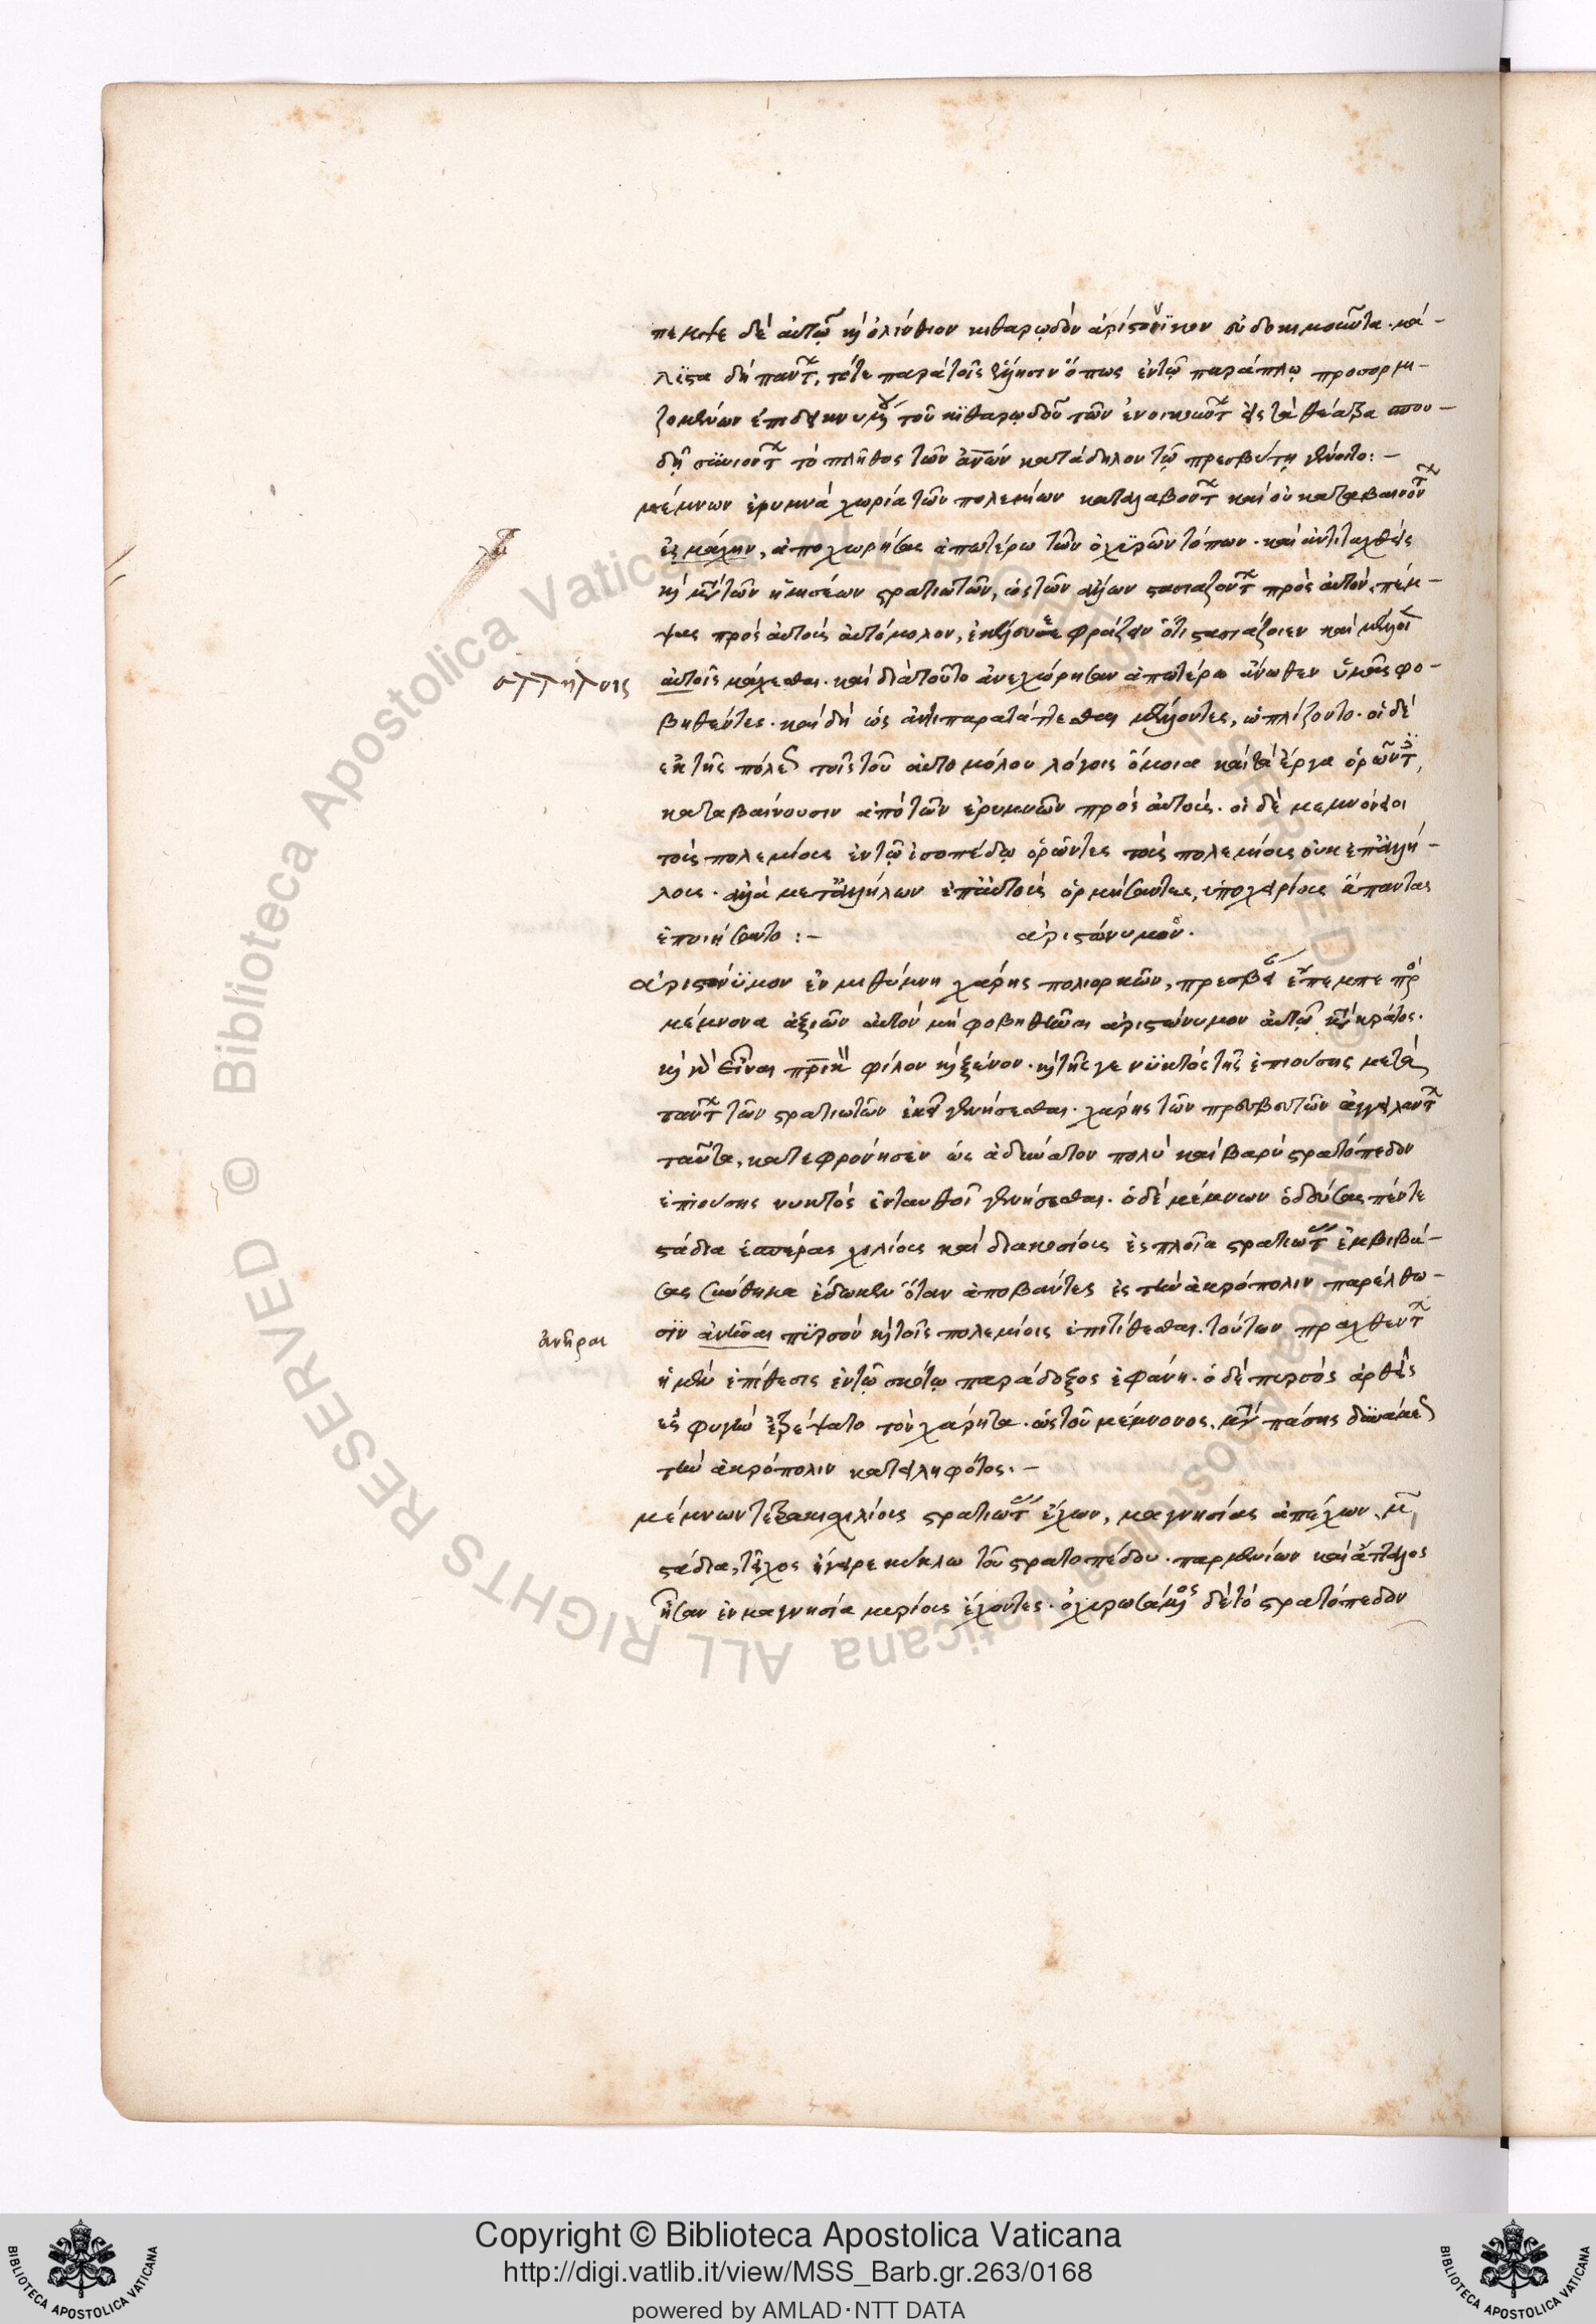 πεμψε δὲ αὐτῷ κỳ ὀλύνθιον κιθαρῳδὸν ἀριστόνικον εὐδοκιμοῦντα· μά-
λιστα δὴ πάντ, τότε παρὰ τοῖς ἕλλησιν ὅπως ἐν τῷ παράπλῳ προσορμι-
ζομένων τοῦ κιθαρῳδοῦ τῶν ἐνοικούντ εἰς τὰ θέατρα σπου-
δῇ συνιόντ τὸ πλῆθος τῶν ἀνῶν κατάδηλον τῷ πρεσβύτῃ γένοιτο:-
μέμνων ἐρυμνὰ χωρία τῶν πολεμίων καταλαβόντ καὶ οὐ καταβαινόντ
ἐς μάχην, ἀποχωρήσας ἀπωτέρω τῶν ὀχυρῶν τόπων· καὶ ἀντιταχθεὶς
κỳ μετὰ τῶν ἡμισέων στρατιωτῶν, ὡς τῶν ἄλλων στασιαζόντ πρὸς αὐτὸν, πέμ-
ψας πρὸς αὐτοὺς αὐτόμολον, ἐκέλευσε φράζειν ὅτι στασιάζοιεν καὶ μέλλοι
αὐτοῖς μάχεσθαι· καὶ διὰ τοῦτο ἀνεχώρησαν ἀπωτέρω ἄνωθεν ὑμᾶς φο-
βηθέντες· καὶ δὴ ὡς ἀντιπαρατάττεσθαι μέλλοντες, ὡπλίζοντο· οἱ δὲ
ἐκ τῆς πόλεως τοῖς τοῦ αὐτομόλου λόγοις ὅμοια καὶ τὰ ἔργα ὁρῶντ,
καταβαίνουσιν ἀπὸ τῶν ἐρυμνῶν πρὸς αὐτούς· οἱ δὲ μεμνόνειοι
τοὺς πολεμίους ἐν τῷ ἰσοπέδῳ ὁρῶντες τοὺς πολεμίους οὐκ ἐπ' ἀλλή-
λους· ἀλλὰ μετ' ἀλλήλων ἐπ' αὐτοὺς ὁρμήσαντες, ὑποχειρίους ἅπαντας
ἐποιήσαντο:- ἀριστώνυμον.
ἀριστώνυμον ἐν μιθύμνῃ χάρης πολιορκῶν, πρεσβεις ἔπεμπε πρ
μέμνονα ἀξιῶν αὐτὸν μὴ φοβηθῆναι ἀριστώνυμον αὐτῷ κατὰ κράτος·
κỳ εἶναι πρικὸν φίλον κỳ ξένον· κỳ τῆς γε νυκτὸς τῆς ἐπιούσης μετὰ
πάντ τῶν στρατιωτῶν ἐκεῖ γενήσεσθαι· χάρης τῶν πρεσβευτῶν ἀγγειλάντ
ταῦτα, κατεφρόνησεν ὡς ἀδύνατον πολὺ καὶ βαρὺ στρατόπεδον
ἐπιούσης νυκτὸς ἐνταυθοῖ γενήσεσθαι· ὁ δὲ μέμνων ὁδεύσας πέντε
στάδια ἑσπέρας χιλίους καὶ διακοσίους ἐς πλοῖα στρατιώτ ἐμβιβά-
σας σύνθημα ἔδωκεν ὅταν ἀποβάντες ἐς τὴν ἀκρόπολιν παρέλθω-
σιν ἀνῆναι πυρσὸν κỳ τοῖς πολεμίοις ἐπιτίθεσθαι· τούτων πραχθέντ
ἡ μὲν ἐπίθεσις ἐν τῷ σκότῳ παράδοξος ἐφάνη· ὁ δὲ πυρσὸς ἀρθεὶς
ἐς φυγὴν ἐτρέψατο τὸν χάρητα· ὡς τοῦ μέμνονος, μετὰ πάσης δυνάμεως
τὴν ἀκρόπολιν κατειληφότος·-
μέμνων τετρακισχιλίους στρατιώτ ἔχων, μαγνησίας ἀπέχων μ
στάδια, τεῖχος ἤγειρε κύκλῳ τοῦ στρατοπέδου· παρμενίων καὶ ἄτταλος
ἦσαν ἐν μαγνησίᾳ μυρίους ἔχοντες· ὀχυρωσάμενος δὲ τὸ στρατόπεδον
ἀνῆραι
Copyright © Biblioteca Apostolica Vaticana
http://digi.vatlib.it/view/MSS_Barb.gr.263/0168
powered by AMLAD·NTT DATA
BIBLIOTECA APOSTOLICA VATICANA
BIBLIOTECA APOSTOLICA VATICANA
© Biblioteca Apostolica Vaticana ALL RIGHTS RESERVED
© Biblioteca Apostolica Vaticana ALL RIGHTS RESERVED